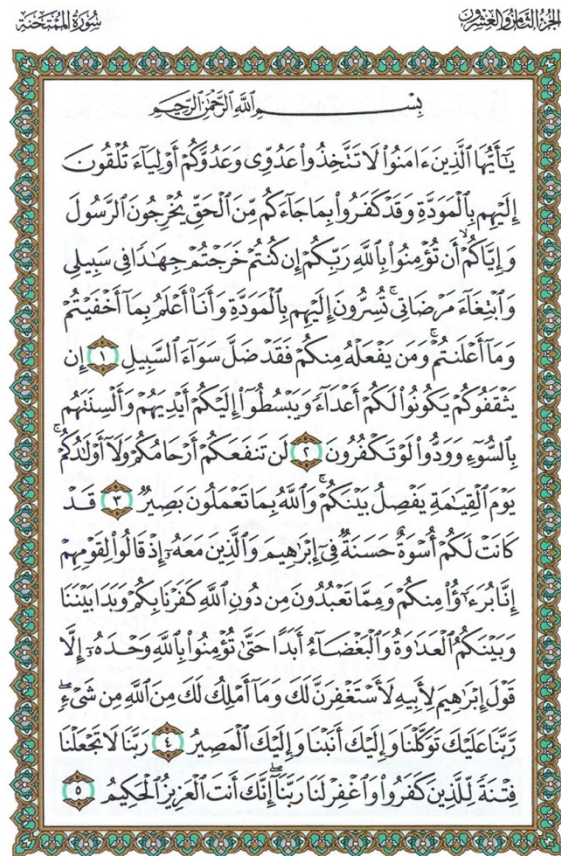 الجزء الثامن والعشرون
سورة الممتحنة
بِسْمِ ٱللَّهِ ٱلرَّحْمَٰنِ ٱلرَّحِيمِ
يَٰٓأَيُّهَا ٱلَّذِينَ ءَامَنُوا۟ لَا تَتَّخِذُوا۟ عَدُوِّى وَعَدُوَّكُمْ أَوْلِيَآءَ تُلْقُونَ
إِلَيْهِم بِٱلْمَوَدَّةِ وَقَدْ كَفَرُوا۟ بِمَا جَآءَكُم مِّنَ ٱلْحَقِّ يُخْرِجُونَ ٱلرَّسُولَ
وَإِيَّاكُمْ ۙ أَن تُؤْمِنُوا۟ بِٱللَّهِ رَبِّكُمْ إِن كُنتُمْ خَرَجْتُمْ جِهَٰدًا فِى سَبِيلِى
وَٱبْتِغَآءَ مَرْضَاتِى ۚ تُسِرُّونَ إِلَيْهِم بِٱلْمَوَدَّةِ وَأَنَا۠ أَعْلَمُ بِمَآ أَخْفَيْتُمْ
وَمَآ أَعْلَنتُمْ ۚ وَمَن يَفْعَلْهُ مِنكُمْ فَقَدْ ضَلَّ سَوَآءَ ٱلسَّبِيلِ ١ إِن
يَثْقَفُوكُمْ يَكُونُوا۟ لَكُمْ أَعْدَآءً وَيَبْسُطُوٓا۟ إِلَيْكُمْ أَيْدِيَهُمْ وَأَلْسِنَتَهُم
بِٱلسُّوٓءِ وَوَدُّوا۟ لَوْ تَكْفُرُونَ ٢ لَن تَنفَعَكُمْ أَرْحَامُكُمْ وَلَآ أَوْلَٰدُكُمْ ۚ
يَوْمَ ٱلْقِيَٰمَةِ يَفْصِلُ بَيْنَكُمْ ۚ وَٱللَّهُ بِمَا تَعْمَلُونَ بَصِيرٌ ٣ قَدْ
كَانَتْ لَكُمْ أُسْوَةٌ حَسَنَةٌ فِىٓ إِبْرَٰهِيمَ وَٱلَّذِينَ مَعَهُۥٓ إِذْ قَالُوا۟ لِقَوْمِهِمْ
إِنَّا بُرَءَٰٓؤُا۟ مِنكُمْ وَمِمَّا تَعْبُدُونَ مِن دُونِ ٱللَّهِ كَفَرْنَا بِكُمْ وَبَدَا بَيْنَنَا
وَبَيْنَكُمُ ٱلْعَدَٰوَةُ وَٱلْبَغْضَآءُ أَبَدًا حَتَّىٰ تُؤْمِنُوا۟ بِٱللَّهِ وَحْدَهُۥٓ إِلَّا
قَوْلَ إِبْرَٰهِيمَ لِأَبِيهِ لَأَسْتَغْفِرَنَّ لَكَ وَمَآ أَمْلِكُ لَكَ مِنَ ٱللَّهِ مِن شَىْءٍ ۖ
رَّبَّنَا عَلَيْكَ تَوَكَّلْنَا وَإِلَيْكَ أَنَبْنَا وَإِلَيْكَ ٱلْمَصِيرُ ٤ رَبَّنَا لَا تَجْعَلْنَا
فِتْنَةً لِّلَّذِينَ كَفَرُوا۟ وَٱغْفِرْ لَنَا رَبَّنَآ ۖ إِنَّكَ أَنتَ ٱلْعَزِيزُ ٱلْحَكِيمُ ٥